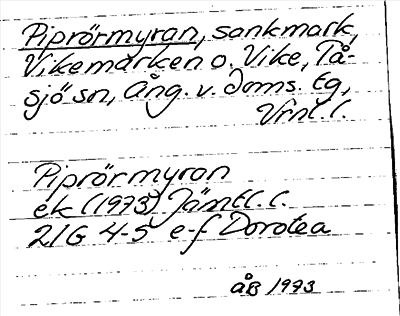 Piprörmyran, sankmark,
Vikemarken o. Vike, Tå-
sjö sn, Ång. v. doms. Eg,
Vrnl. l.
Piprörmyran
ek (1973) Jämtl. l.
21G 4-5 e-f Dorotea
åB 1973